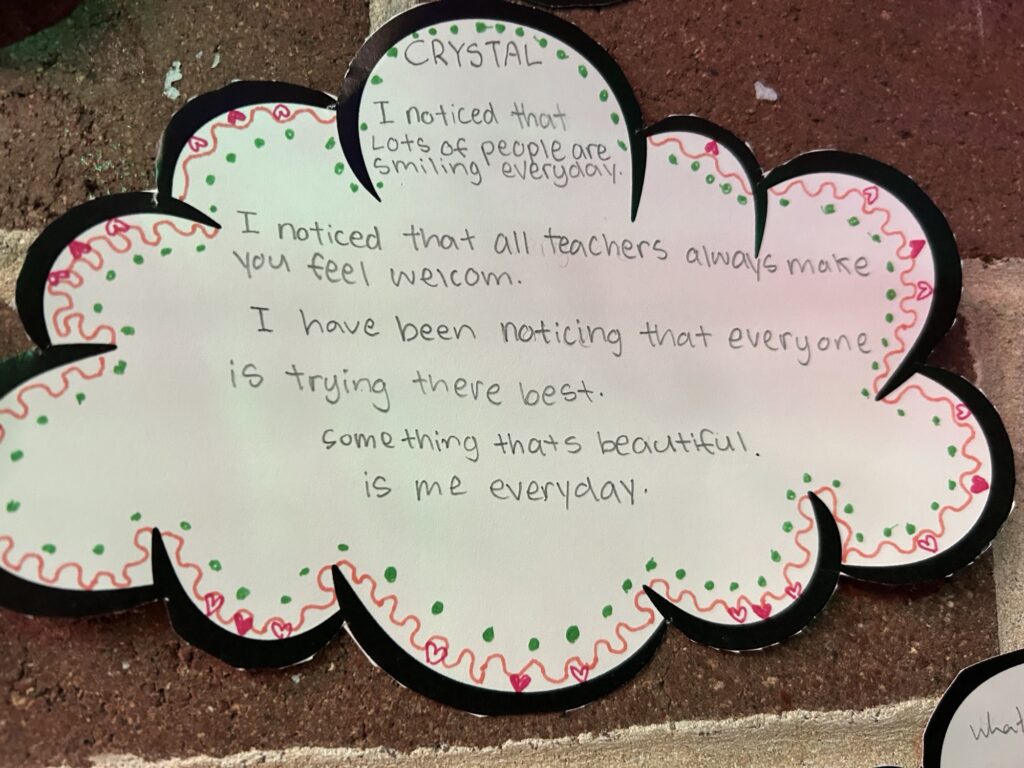 CRYSTAL
I noticed that
Lots of people are
smiling everyday.
I noticed that all teachers always make
you feel welcom.
I have been noticing that everyone
is trying there best.
something thats beautiful.
is me everyday.
what